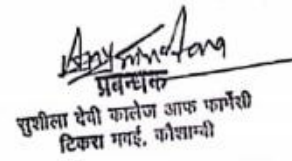 प्रबन्धक
सुशीला देवी कालेज आफ फार्मेसी
टिकरा मगई, कौशाम्बी